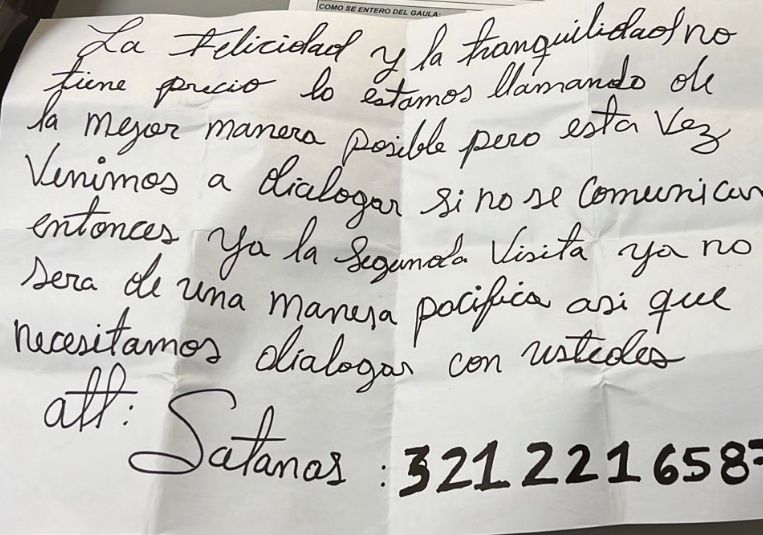 COMO SE ENTERO DEL GAULA:
La Felicidad y la tranquilidad no
tiene precio lo estamos llamando de
la mejor manera posible pero esta vez
Venimos a dialogar si no se Comunican
entonces ya la segunda Visita ya no
sera de una manera pacifica asi que
necesitamos dialogar con ustedes
att:
Satanas : 321 221 658